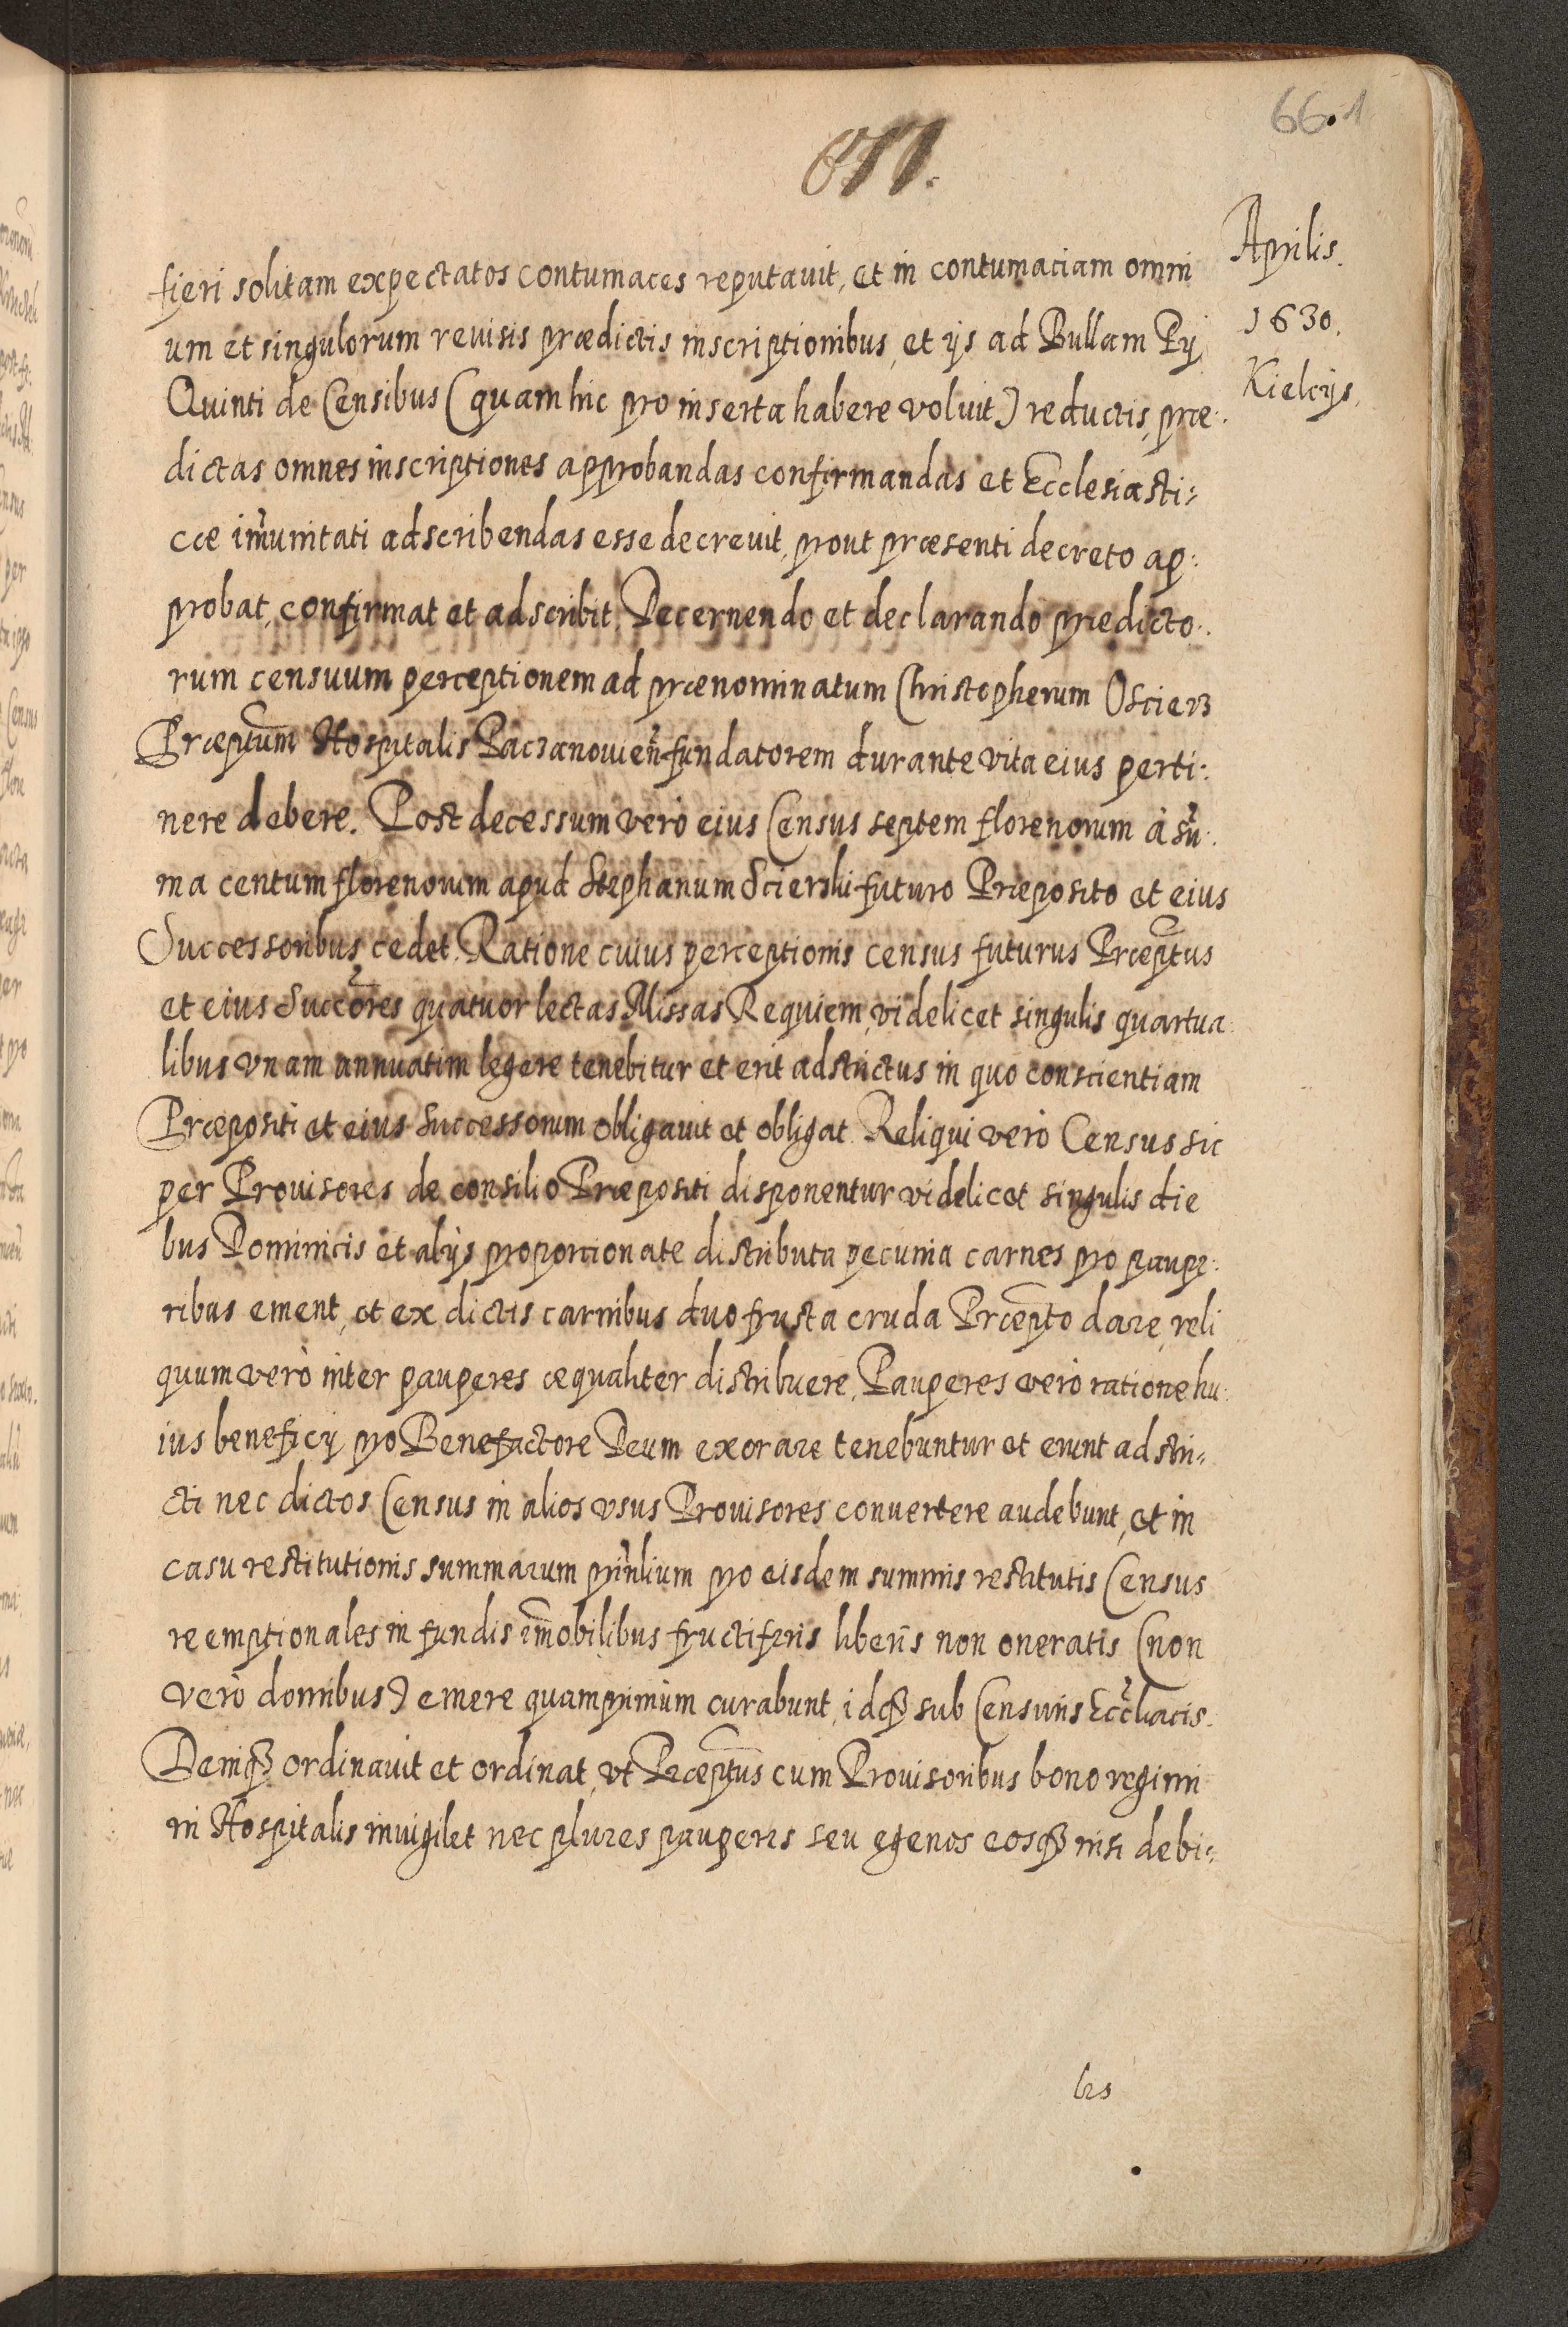 66.1
Aprilis.
1630.
Kielcijs.
fieri solitam expectatos contumaces reputauit, et in contumaciam omni
um et singulorum reuisis prædictis inscriptionibus, et ijs ad Bullam Pij
Quinti de Censibus (quam hic pro inserta habere voluit) reductis, præ:
dictas omnes inscriptiones approbandas confirmandas et Ecclesiasti:
cæ im̃unitati adscribendas esse decreuit, prout præsenti decreto ap:
probat, confirmat et adscribit. Decernendo et declarando prædicto:
rum censuum perceptionem ad prænominatum Christopherum Oscierz
Præptum Hospitalis Paczanouien̄ fundatorem durante vita eius perti:
nere debere. Post decessum verò eius Census septem florenorum à sũ:
ma centum florenorum apud Stephanum Scierski futuro Præposito et eius
Successoribus cedet. Ratione cuius perceptionis census futurus Præptus
et eius Succõres quatuor lectas Missas Requiem, videlicet singulis quartua
libus vnam annuatim legere tenebitur et erit adstrictus in quo conscientiam
Præpositi et eius Successorum obligauit et obligat. Reliqui verò Census sic
per Prouisores de consilio Præpositi disponentur videlicet singulis die
bus Dominicis et alijs proportionate distributa pecunia carnes pro paupe:
ribus ement, et ex dictis carnibus duo frusta cruda Præpto dare, reli
quum verò inter pauperes æqualiter distribuere. Pauperes verò ratione hu:
ius beneficij pro Benefactore Deum exorare tenebuntur et erunt adstri:
cti nec dictos Census in alios vsus Prouisores conuertere audebunt, et in
casu restitutionis summarum prin̄lium pro eisdem summis restitutis Census
reemptionales in fundis im̃obilibus fructiferis liberis non oneratis (non
verò domibus) emere quamprimùm curabunt, idq3 sub Censuris Ecc̃liacis.
Deniq3 ordinauit et ordinat, vt Præptus cum Prouisoribus bono regimi
ni Hospitalis inuigilet nec plures pauperes seu egenos eosq3 nisi debi: